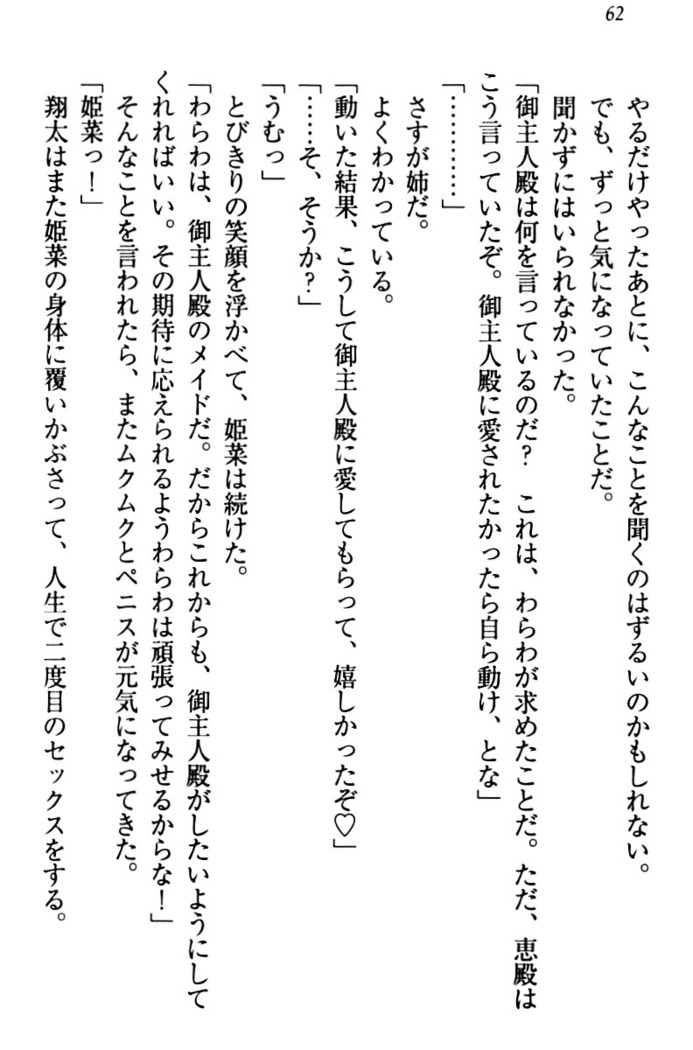 62
やるだけやったあとに、こんなことを聞くのはずるいのかもしれない。
でも、ずっと気になっていたことだ。
聞かずにはいられなかった。
「御主人殿は何を言っているのだ？　これは、わらわが求めたことだ。ただ、恵殿は
こう言っていたぞ。御主人殿に愛されたかったら自ら動け、とな」
「…………」
さすが姉だ。
よくわかっている。
「動いた結果、こうして御主人殿に愛してもらって、嬉しかったぞ♡」
「……そ、そうか？」
「うむっ」
とびきりの笑顔を浮かべて、姫菜は続けた。
「わらわは、御主人殿のメイドだ。だからこれからも、御主人殿がしたいようにして
くれればいい。その期待に応えられるようわらわは頑張ってみせるからな！」
そんなことを言われたら、またムクムクとペニスが元気になってきた。
「姫菜っ！」
翔太はまた姫菜の身体に覆いかぶさって、人生で二度目のセックスをする。